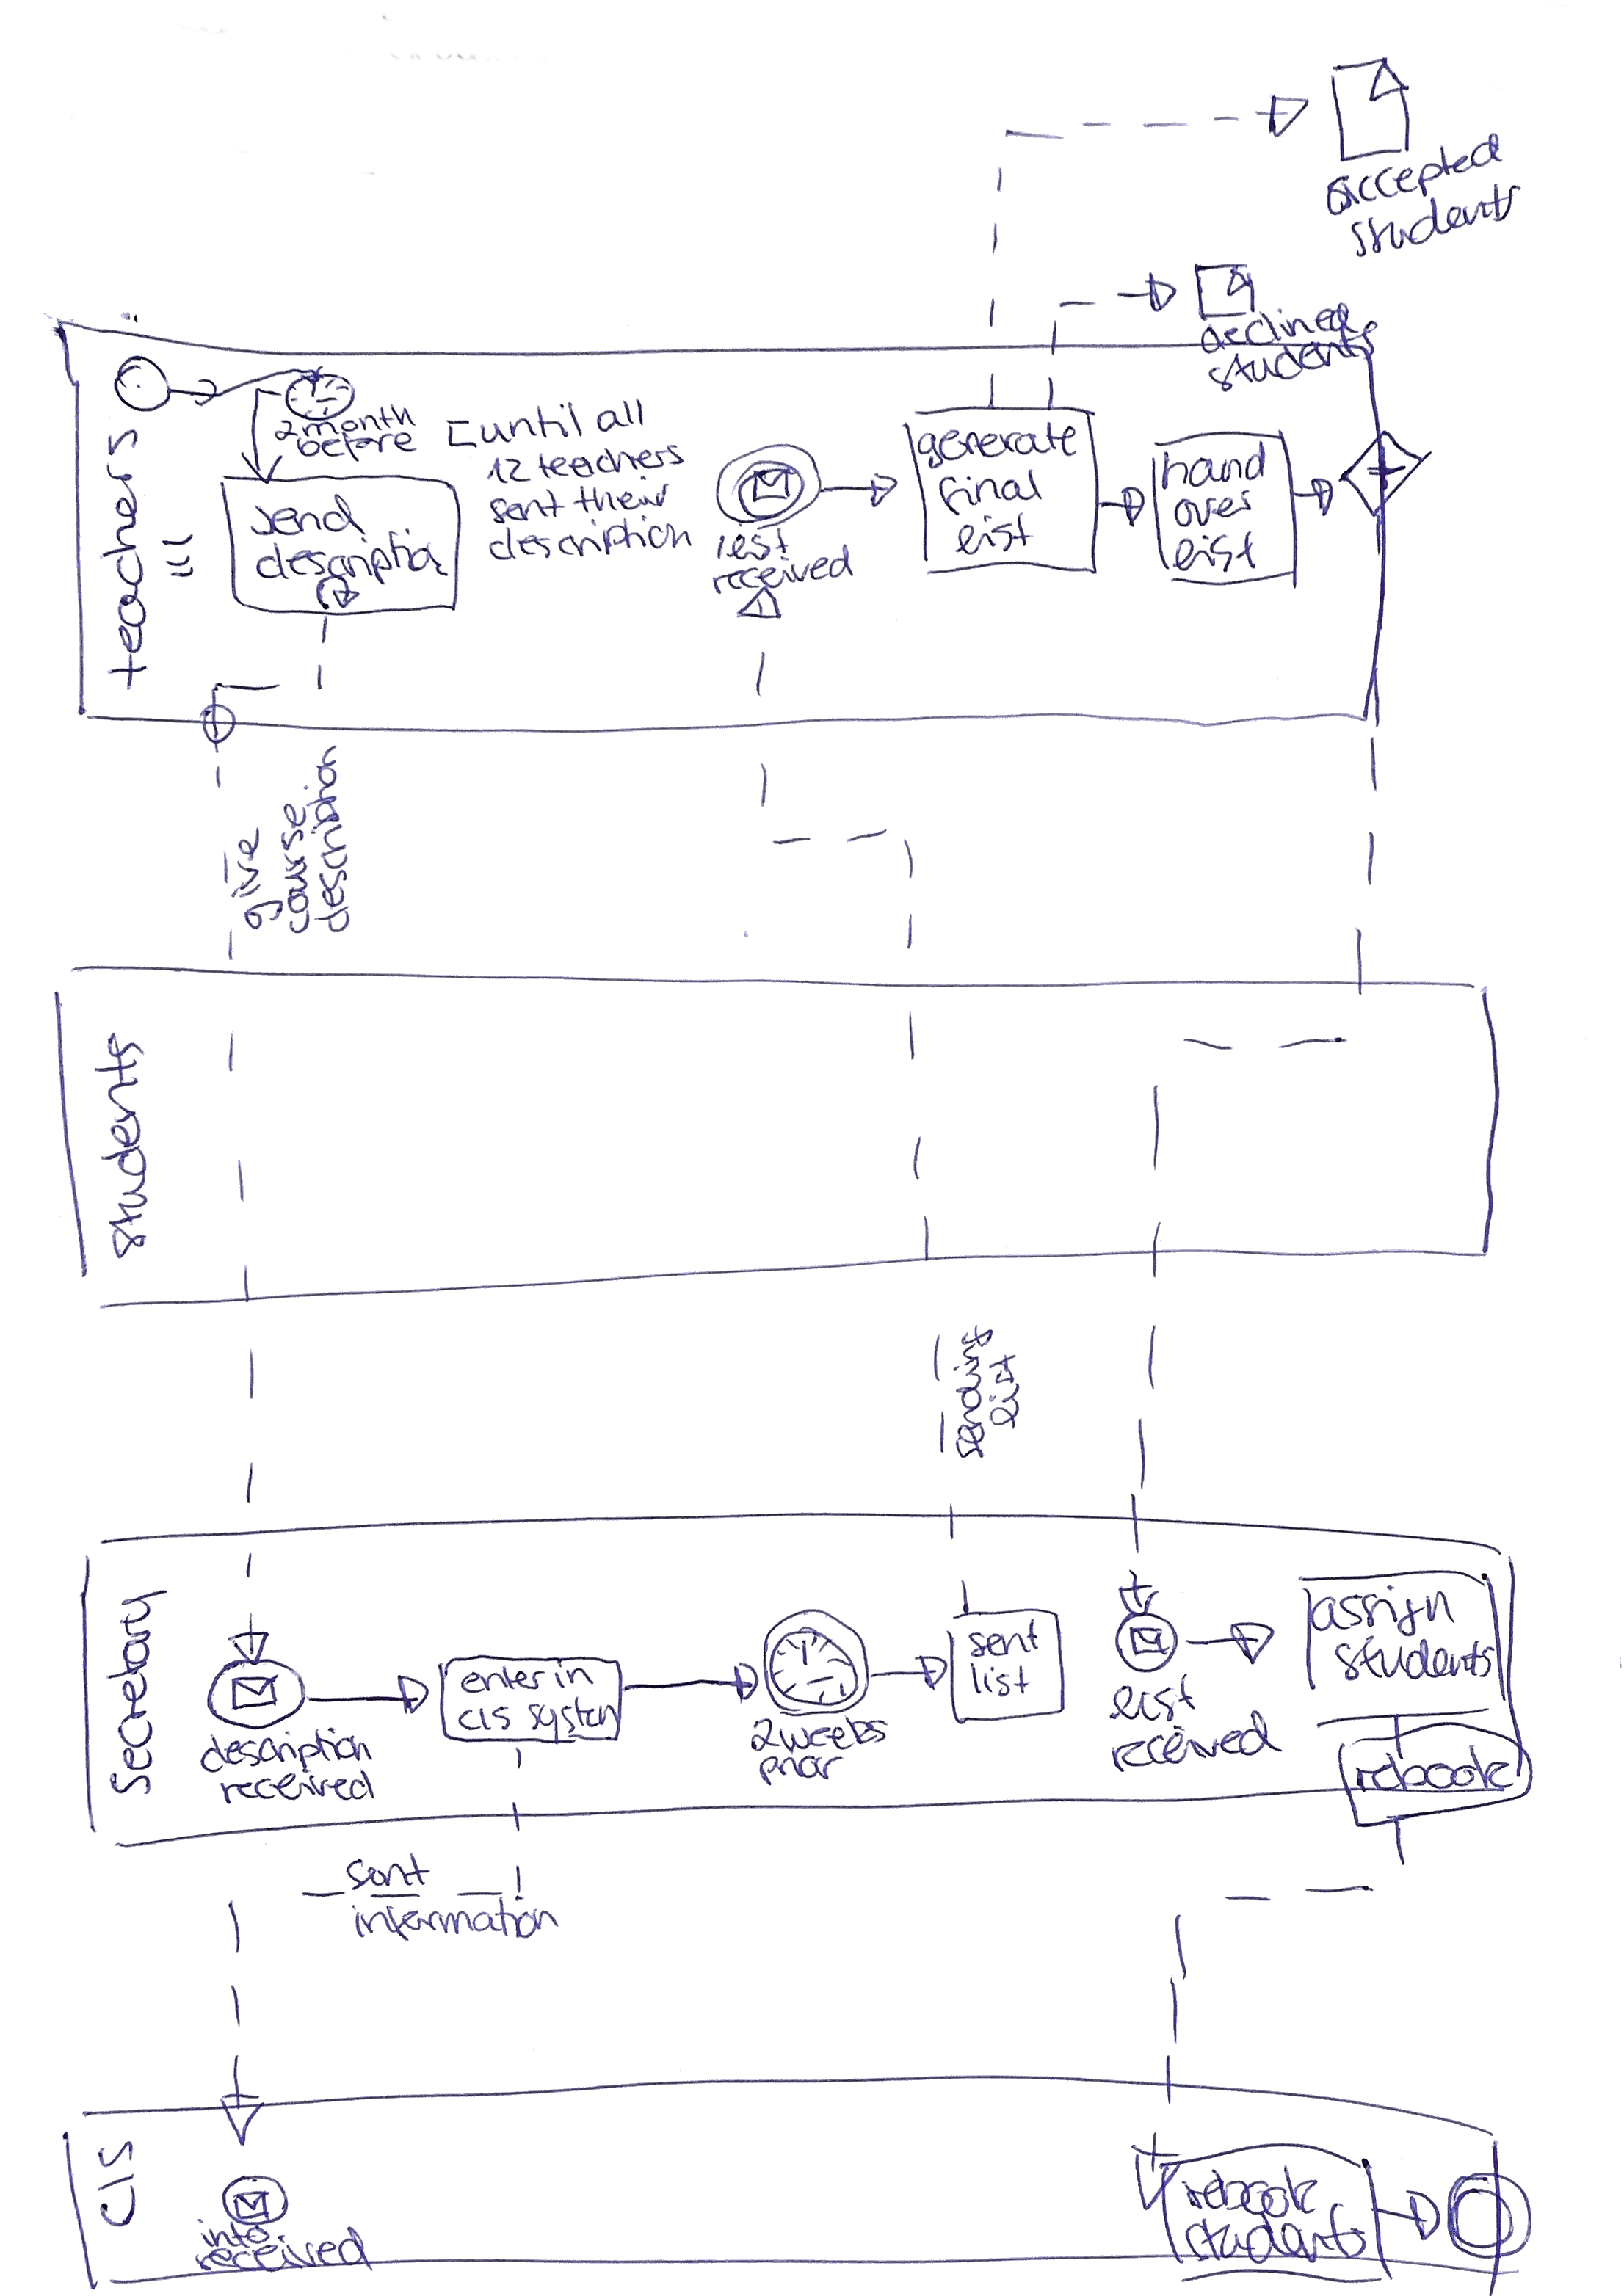 accepted
students
declined
students
teachers
2 month
before
[ until all
12 teachers
sent their
description
send
description
list
received
generate
final
list
hand
over
list
give
course
description
students
sending
list
Secretary
description
received
enter in
CIS system
2 weeks
prior
sent
list
list
received
assign
students
rebook
sent
information
CIS
info
received
rebook
students